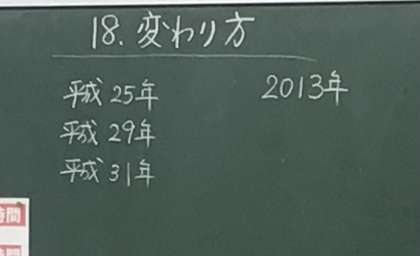 18. 変わり方
平成25年 2013年
平成29年
平成31年
時間
時間